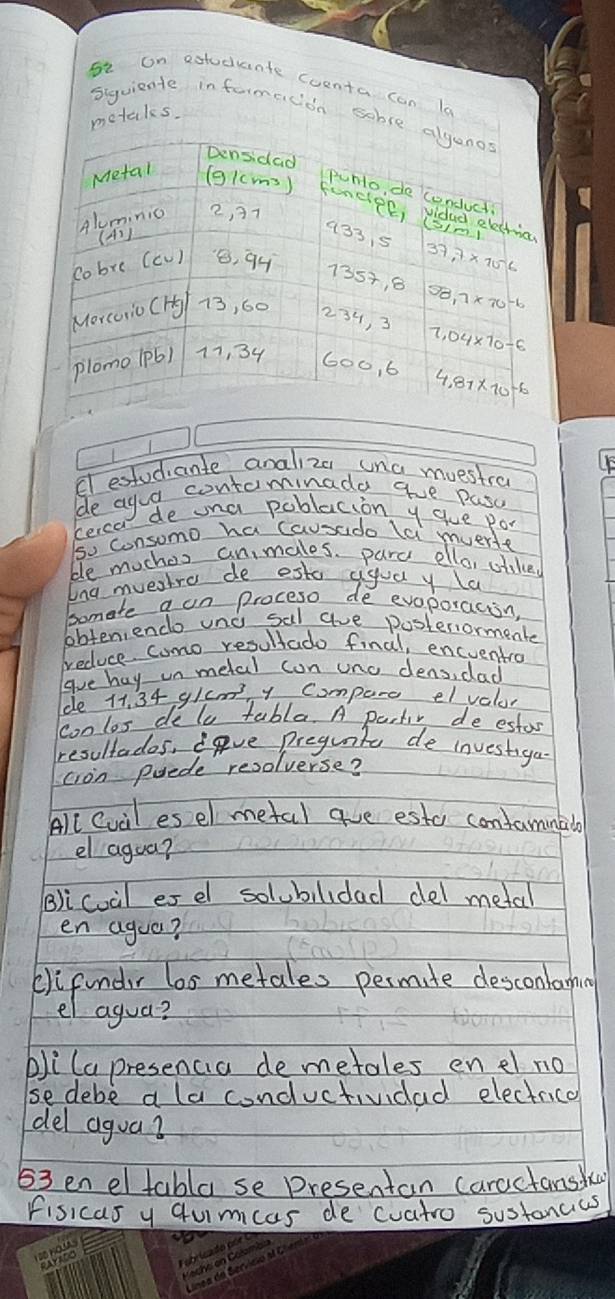 52 un estudiante cuenta con la
siguiente información sobre algunos
metales.
Metal Densidad (g/cm3) punto de funcion conductividad electrica (S/m)
Aluminio (Al) 2,71 933,5 37,7×10-6
Cobre (cu) 8,94 1357,8 58,1×10-6
Mercurio (Hg) 13,60 234,3 1,04×10-6
plomo (pb) 11,34 600,6 4,81×10-6
El estudiante analiza una muestra
de agua contaminada que pasa
cerca de una población y que por
su consumo ha causado la muerte
de muchos animales. para ello, utiliza
una muestra de esta agua y la
somete a un proceso de evaporación,
obteniendo una sal que posteriormente
reduce. como resultado final, encuentra
que hay un metal con una densidad
de 11,34 g/cm3, y compara el valor
con los de la tabla. A partir de estos
resultados, ¿que pregunta de investiga-
ción puede resolverse?
A)¿Cuál es el metal que esta contaminado
el agua?
B)¿Cuál es el solubilidad del metal
en agua?
C)¿fundir los metales permite descontamin
el agua?
D)¿la presencia de metales en el no
se debe a la conductividad electrica
del agua?
53 en el tabla se presentan
fisicas y quimicas de cuatro sustancias
100 HOJAS
RAYADO
Fabricado por
Hecho en Colombia
Línea de Servicio al Cliente